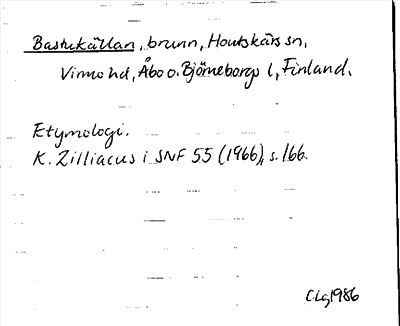 Bastukällan, brunn, Houtskärs sn,
Virmo hd, Åbo o. Björneborgs l, Finland.
Etymologi.
K. Zilliacus i SNF 55 (1966), s. 166.
CLg 1986